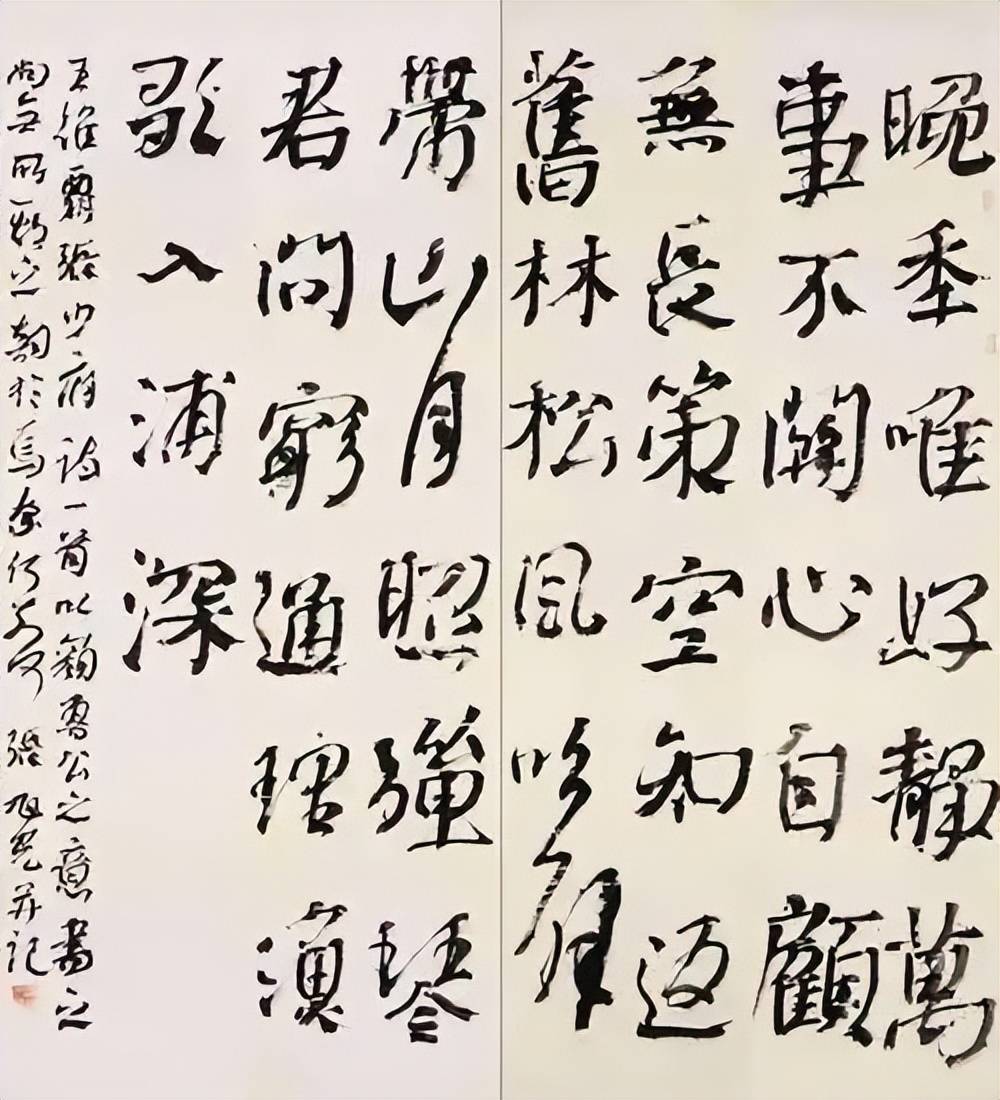 晚秊唯好靜萬
事不關心自顧
無長策空知返
舊林松風吹解
帶山月照彈琴
君問窮通理漁
歌入浦深
王維酬張少府詩一首以顏魯公之意書之
尚無所之韵於焉奈何奈何 張旭光并記